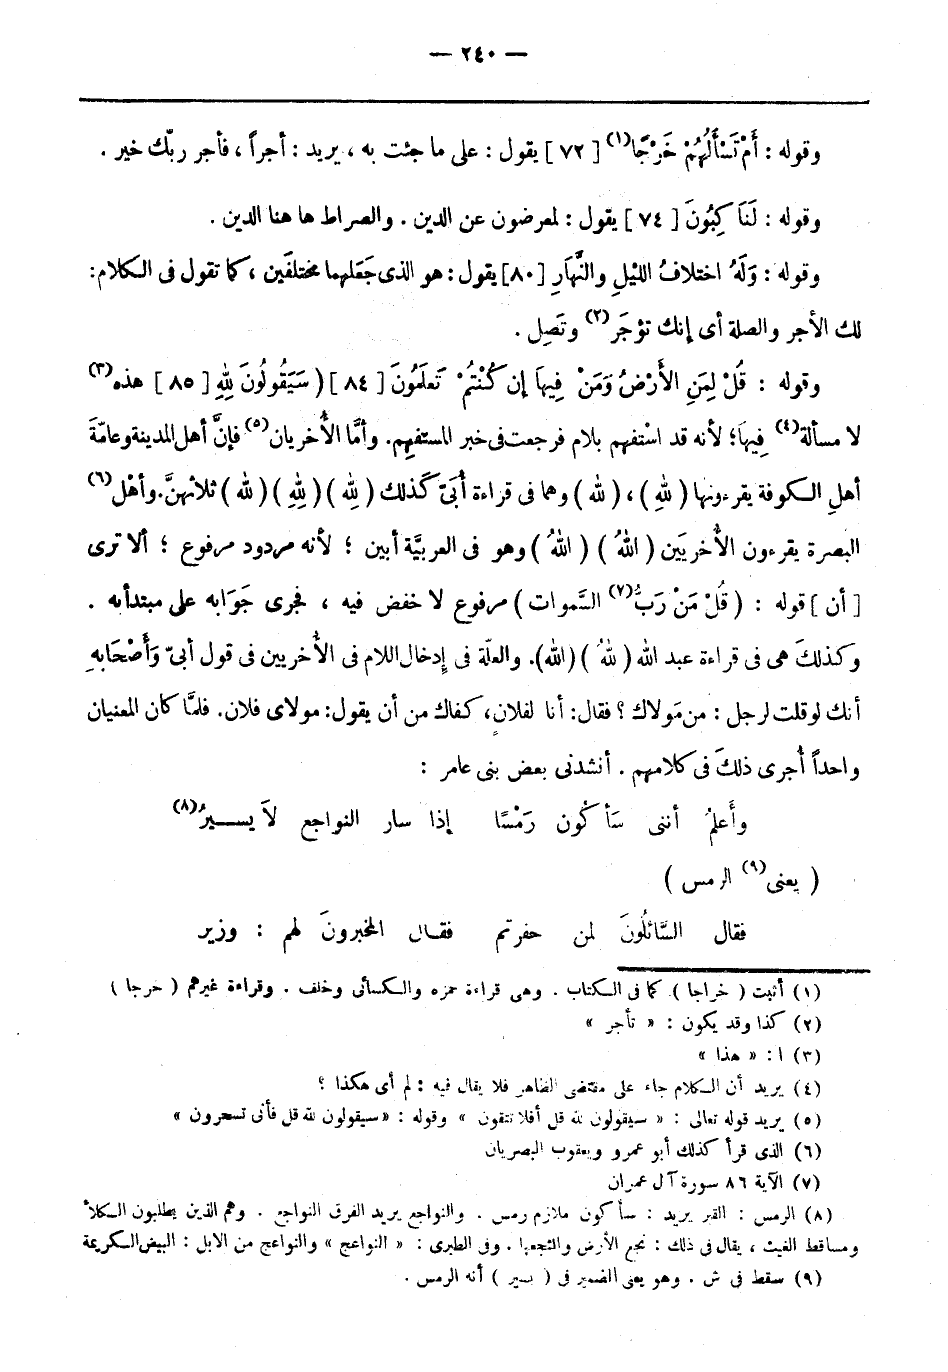 — ٢٤٠ —
وقوله : أَمْ تَسْأَلُهُمْ خَرْجًا(١) [ ٧٢ ] يقول : على ما جئت به ، يريد : أجراً ، فأجر ربّك خير .
وقوله : لَنَاكِبُونَ [ ٧٤ ] يقول : لمعرضون عن الدين . والصراط ها هنا الدين .
وقوله : وَلَهُ اختلافُ الليْلِ والنَّهَارِ [ ٨٠ ] يقول : هو الذى جَعَلهما مختلفَين ، كما تقول فى الكلام:
لك الأجر والصلة أى إنك تؤجَر(٢) وتَصِل .
وقوله : قُلْ لِمَنِ الأَرْضُ وَمَنْ فِيهَا إِن كُنْتُمْ تَعلَمُونَ [ ٨٤ ] ( سَيَقُولُونَ لِلهِ [ ٨٥ ] هذه(٣)
لا مسألة(٤) فِيهَا؛ لأنه قد اسْتفهم بلام فرجعت فى خبر المستفهِم. وأمَّا الأُخريان(٥) فإنَّ أهل المدينة وعامّة
أهلِ الكوفة يقرءونها ( لله ) ، ( لله ) وهما فى قراءة أُبَىّ كَذلك ( لِلهِ ) ( لِلهِ ) ( لله ) ثلاثهنَّ. وأهْل(٦)
البصرة يقرءون الأُخريَين ( اللهُ ) ( اللهُ ) وهو فى العربيَّة أبين ؛ لأنه مردود مرفوع ؛ ألا ترى
[ أن ] قوله : ( قُلْ مَنْ رَبُّ(٧) السَّموات ) مرفوع لا خفض فيه ، فجرى جَوَابه على مبتدأبه .
وكذلكَ هى فى قراءة عبد الله ( للهُ ) (الله). والعلّة فى إدخال اللام فى الأُخريين فى قول أبىّ وَأَصْحَابه
أنك لو قلت لرجل : من مَولاك ؟ فقال: أنا لفلان، كفاك من أن يقول: مولاى فلان. فلمَّا كان المعنيان
واحداً أُجرى ذلكَ فى كلامهم . أنشدنى بعض بنى عامر :
وأَعلمُ أننى سَأكُون رَمْسًا إذا سار النواجع لاَ يسيرُ(٨)
( يعنى(٩) الرمس )
فقال السَّائلُونَ لمن حفرتم فقال المخبرونَ لهم : وزير
(١) أثبت ( خراجا ) كما فى الكتاب . وهى قراءة حمزه والكسائى وخلف . وقراءة غيرهم ( خرجا )
(٢) كذا وقد يكون : « تأجر »
(٣) ا : « هذا »
(٤) يريد أن الكلام جاء على مقتضى الظاهر فلا يقال فيه : لم أى هكذا ؟
(٥) يريد قوله تعالى : « سيقولون لله قل أفلا تتقون » وقوله : «سيقولون لله قل فأنى تسحرون »
(٦) الذى قرأ كذلك أبو عمرو ويعقوب البصريان
(٧) الآية ٨٦ سورة آل عمران
(٨) الرمس : القبر يريد : سأكون ملازم رمس . والنواجع يريد الفرق النواجع . وهم الذين يطلبون الكلأ
ومساقط الغيث ، يقال فى ذلك : نجع الأرض وانتجعها . وفى الطبرى : « النواعج » والنواعج من الابل : البيض الكريمة
(٩) سقط فى ش . وهو يعنى الضمير فى ( يسير ) أنه الرمس .